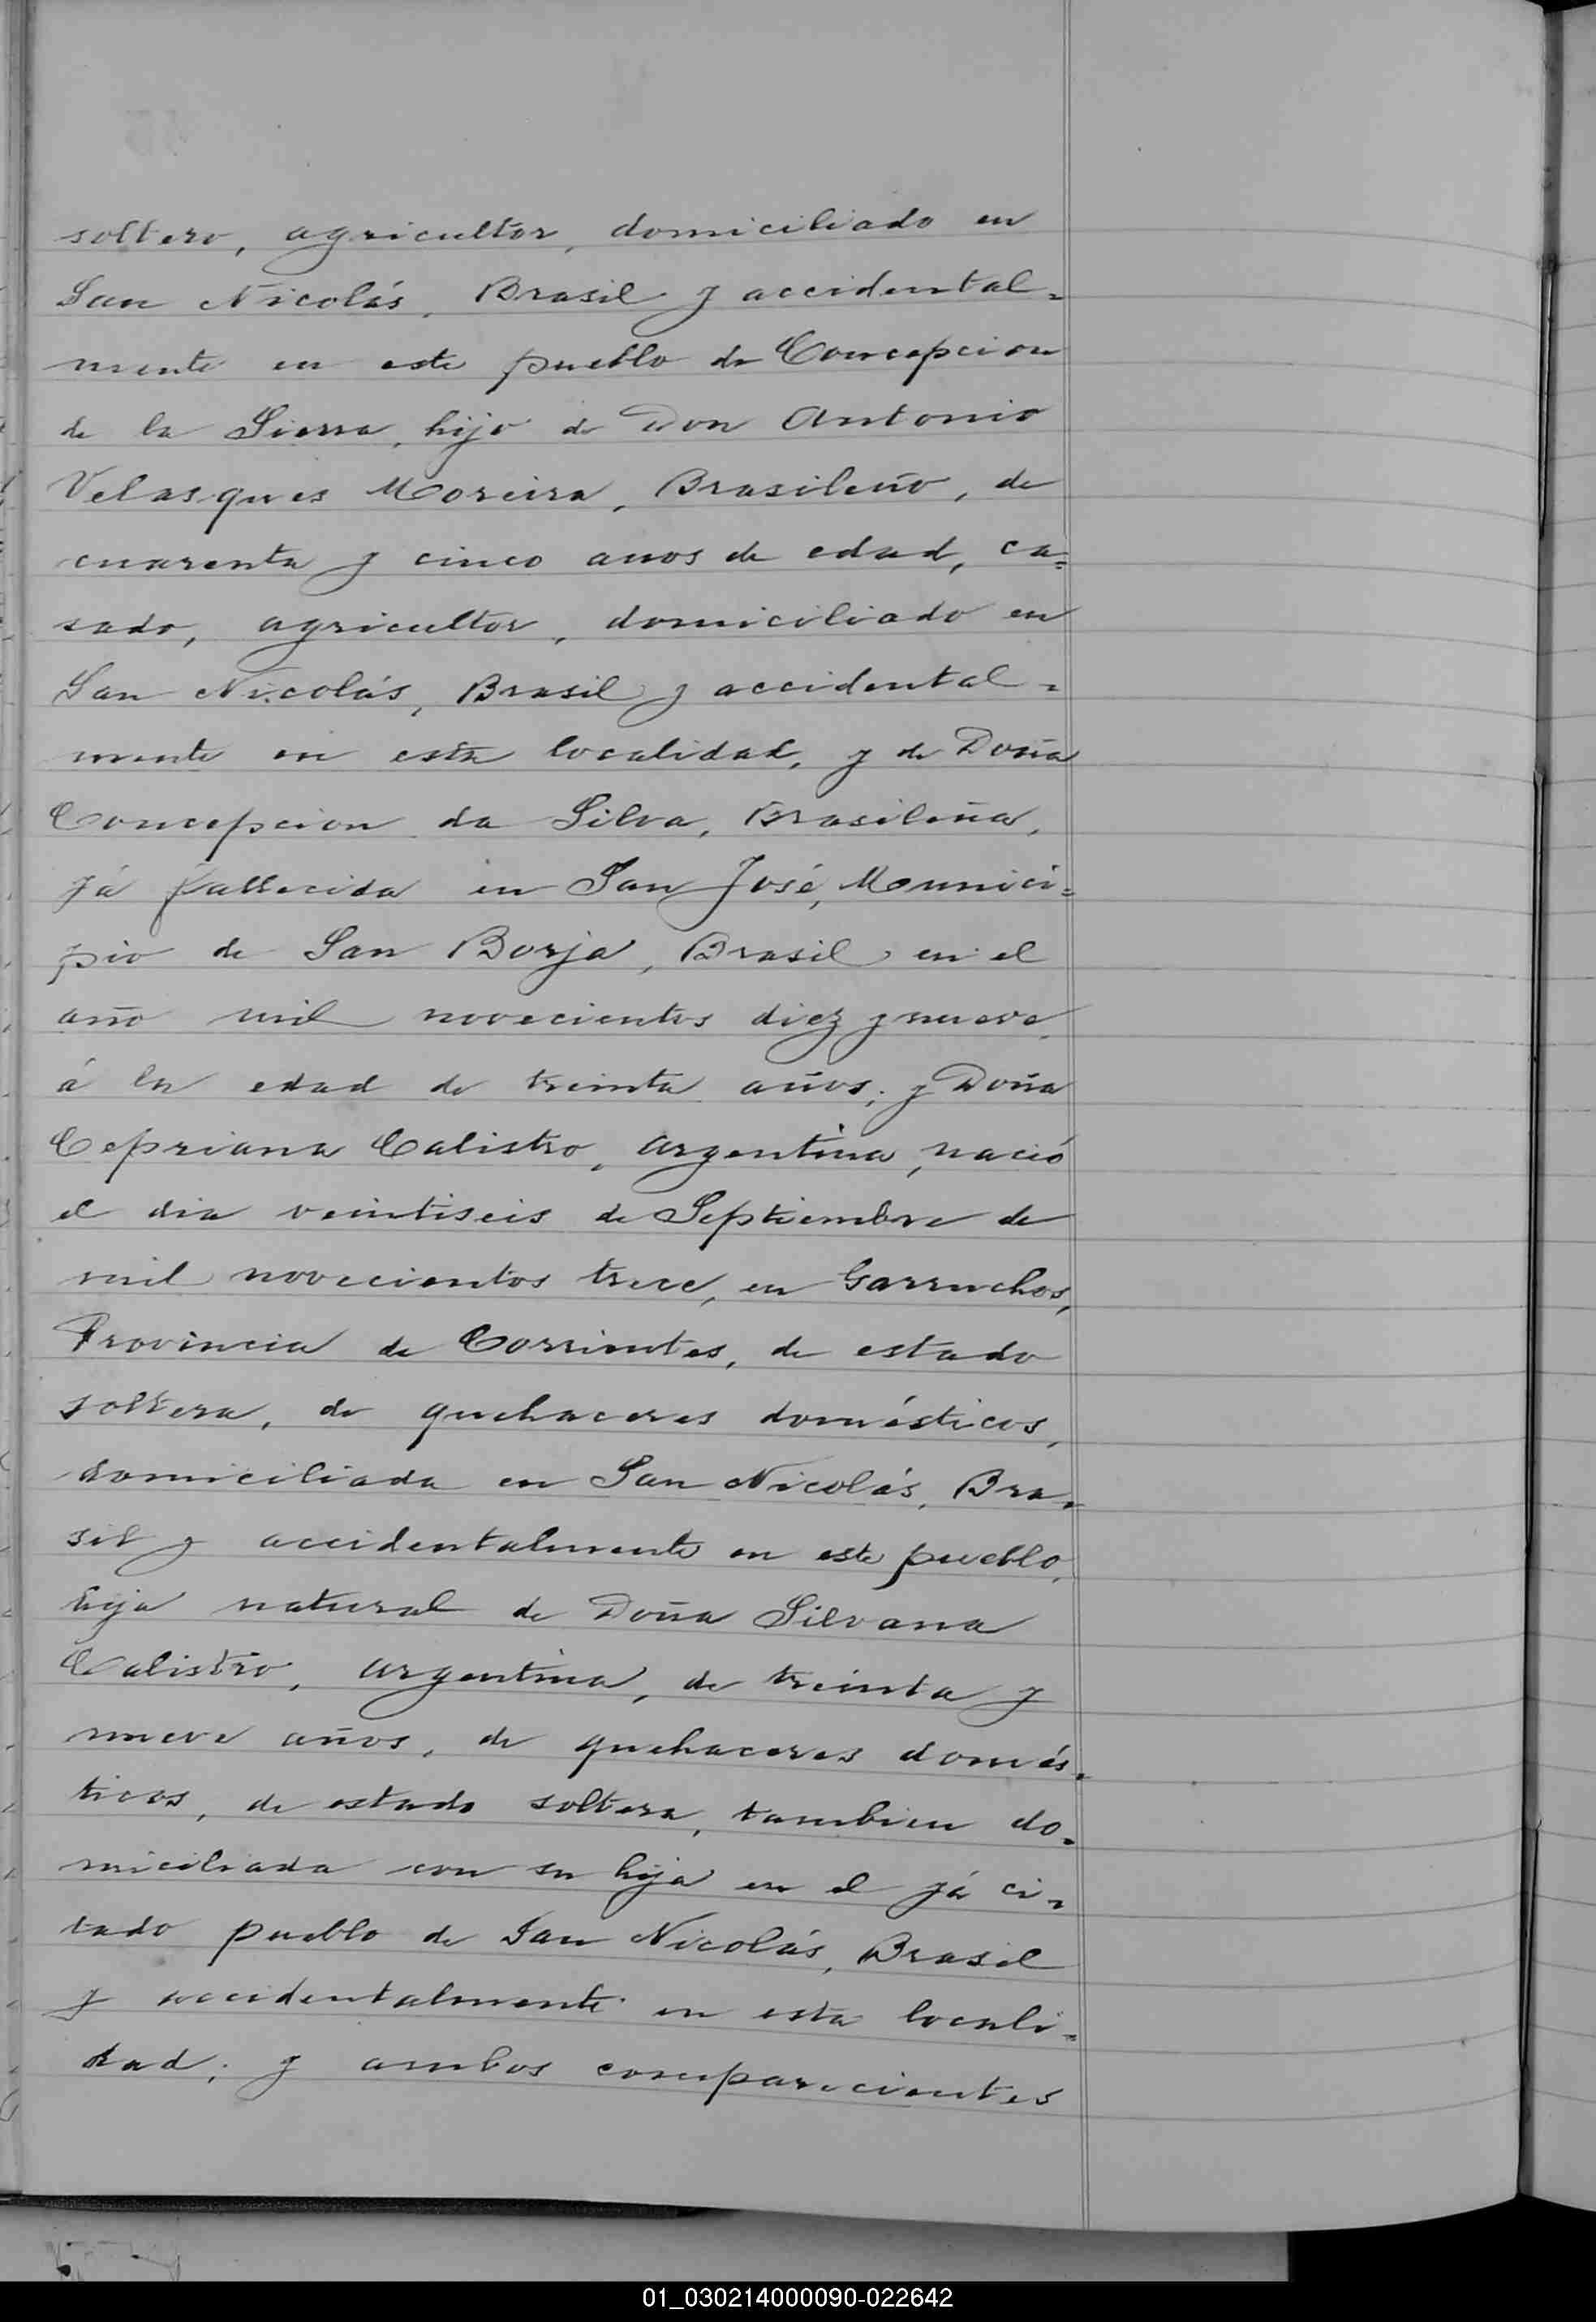 soltero, agricultor, domiciliado en
San Nicolás, Brasil y accidental=
mente en este pueblo de Concepcion
de la Sierra, hijo de Don Antonio
Velasques Moreira, Brasileño, de
cuarenta y cinco anos de edad, ca=
sado, agricultor, domiciliado en
San Nicolás, Brasil y accidental=
mente en esta localidad, y de Doña
Concepcion da Silva, Brasileña,
yá fallecida en San José, Munici=
pio de San Borja, Brasil en el
año mil novecientos diez y nueve
á la edad de treinta años; y Doña
Cepriana Calistro, argentina, nació
el dia veintiseis de Septiembre de
mil novecientos trece, en Garruchos,
Provincia de Corrientes, de estado
soltera, de quehaceres domésticos,
domiciliada en San Nicolás, Bra=
sil y accidentalmente en este pueblo,
hija natural de Doña Silvana
Calistro, argentina, de treinta y
nueve años, de quehaceres domés=
ticos, de estado soltera, tambien do=
miciliada con su hija en el yá ci=
tado pueblo de San Nicolás, Brasil
y accidentalmente en esta locali=
dad; y ambos comparecientes
01_030214000090-022642